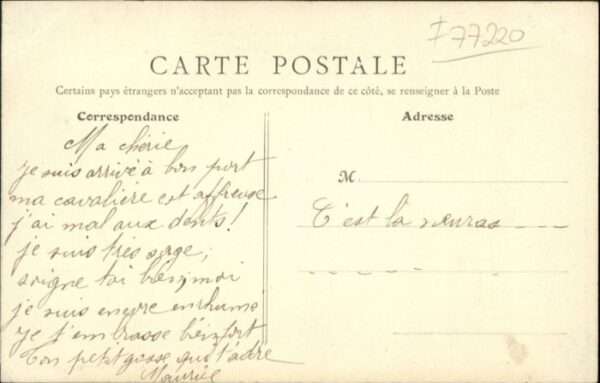 I 77220
CARTE POSTALE
Certains pays étrangers n'acceptant pas la correspondance de ce côté, se renseigner à la Poste
Correspondance
Ma chérie
je suis arrivé à bon port
ma cavalière est affreuse
j'ai mal aux dents!
je suis très sage,
soigne toi bien, moi
je suis encore enrhumé
je t'embrasse bien fort
Ton petit gosse qui t'adre
Maurice
Adresse
M.
C'est la neuras